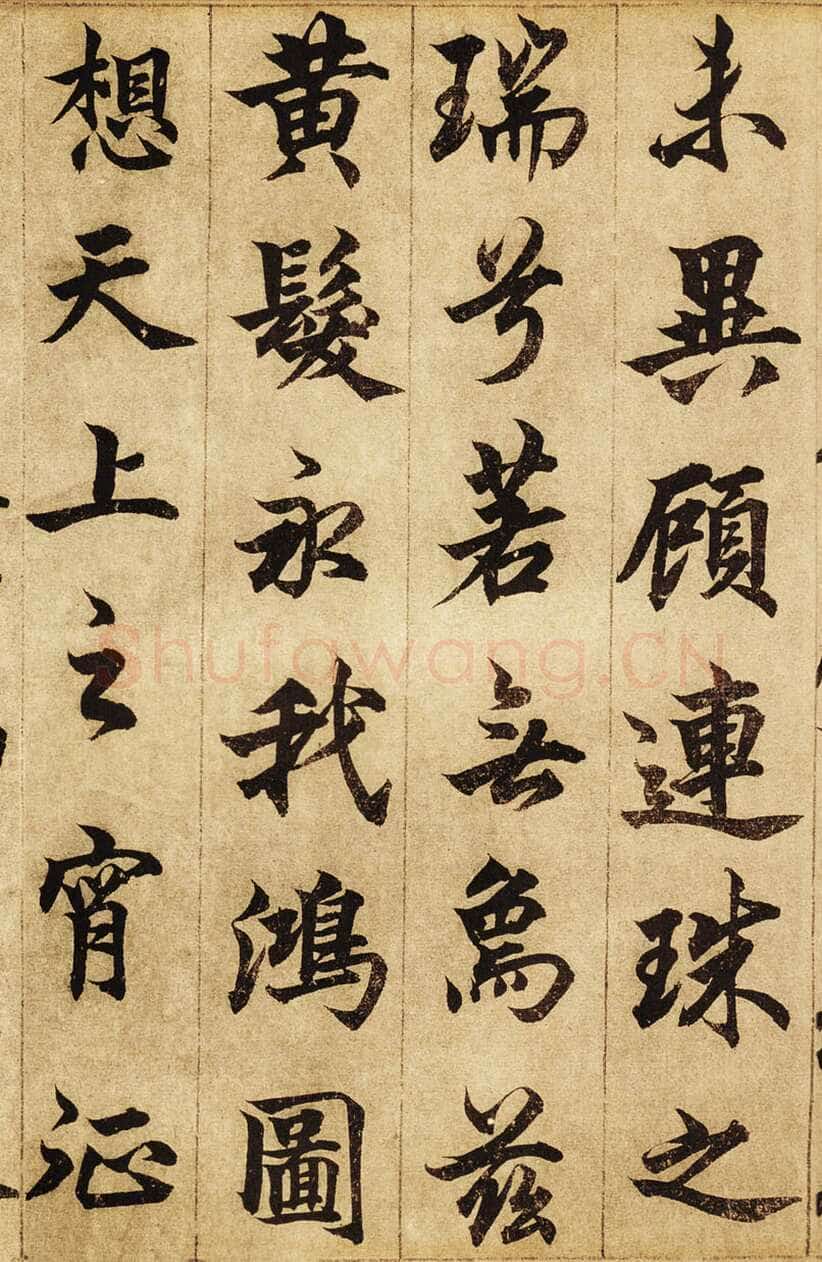 未異顧連珠之
瑞兮若無為茲
黄髮永我鴻圖
想天上之宵征
Shufawang.CN